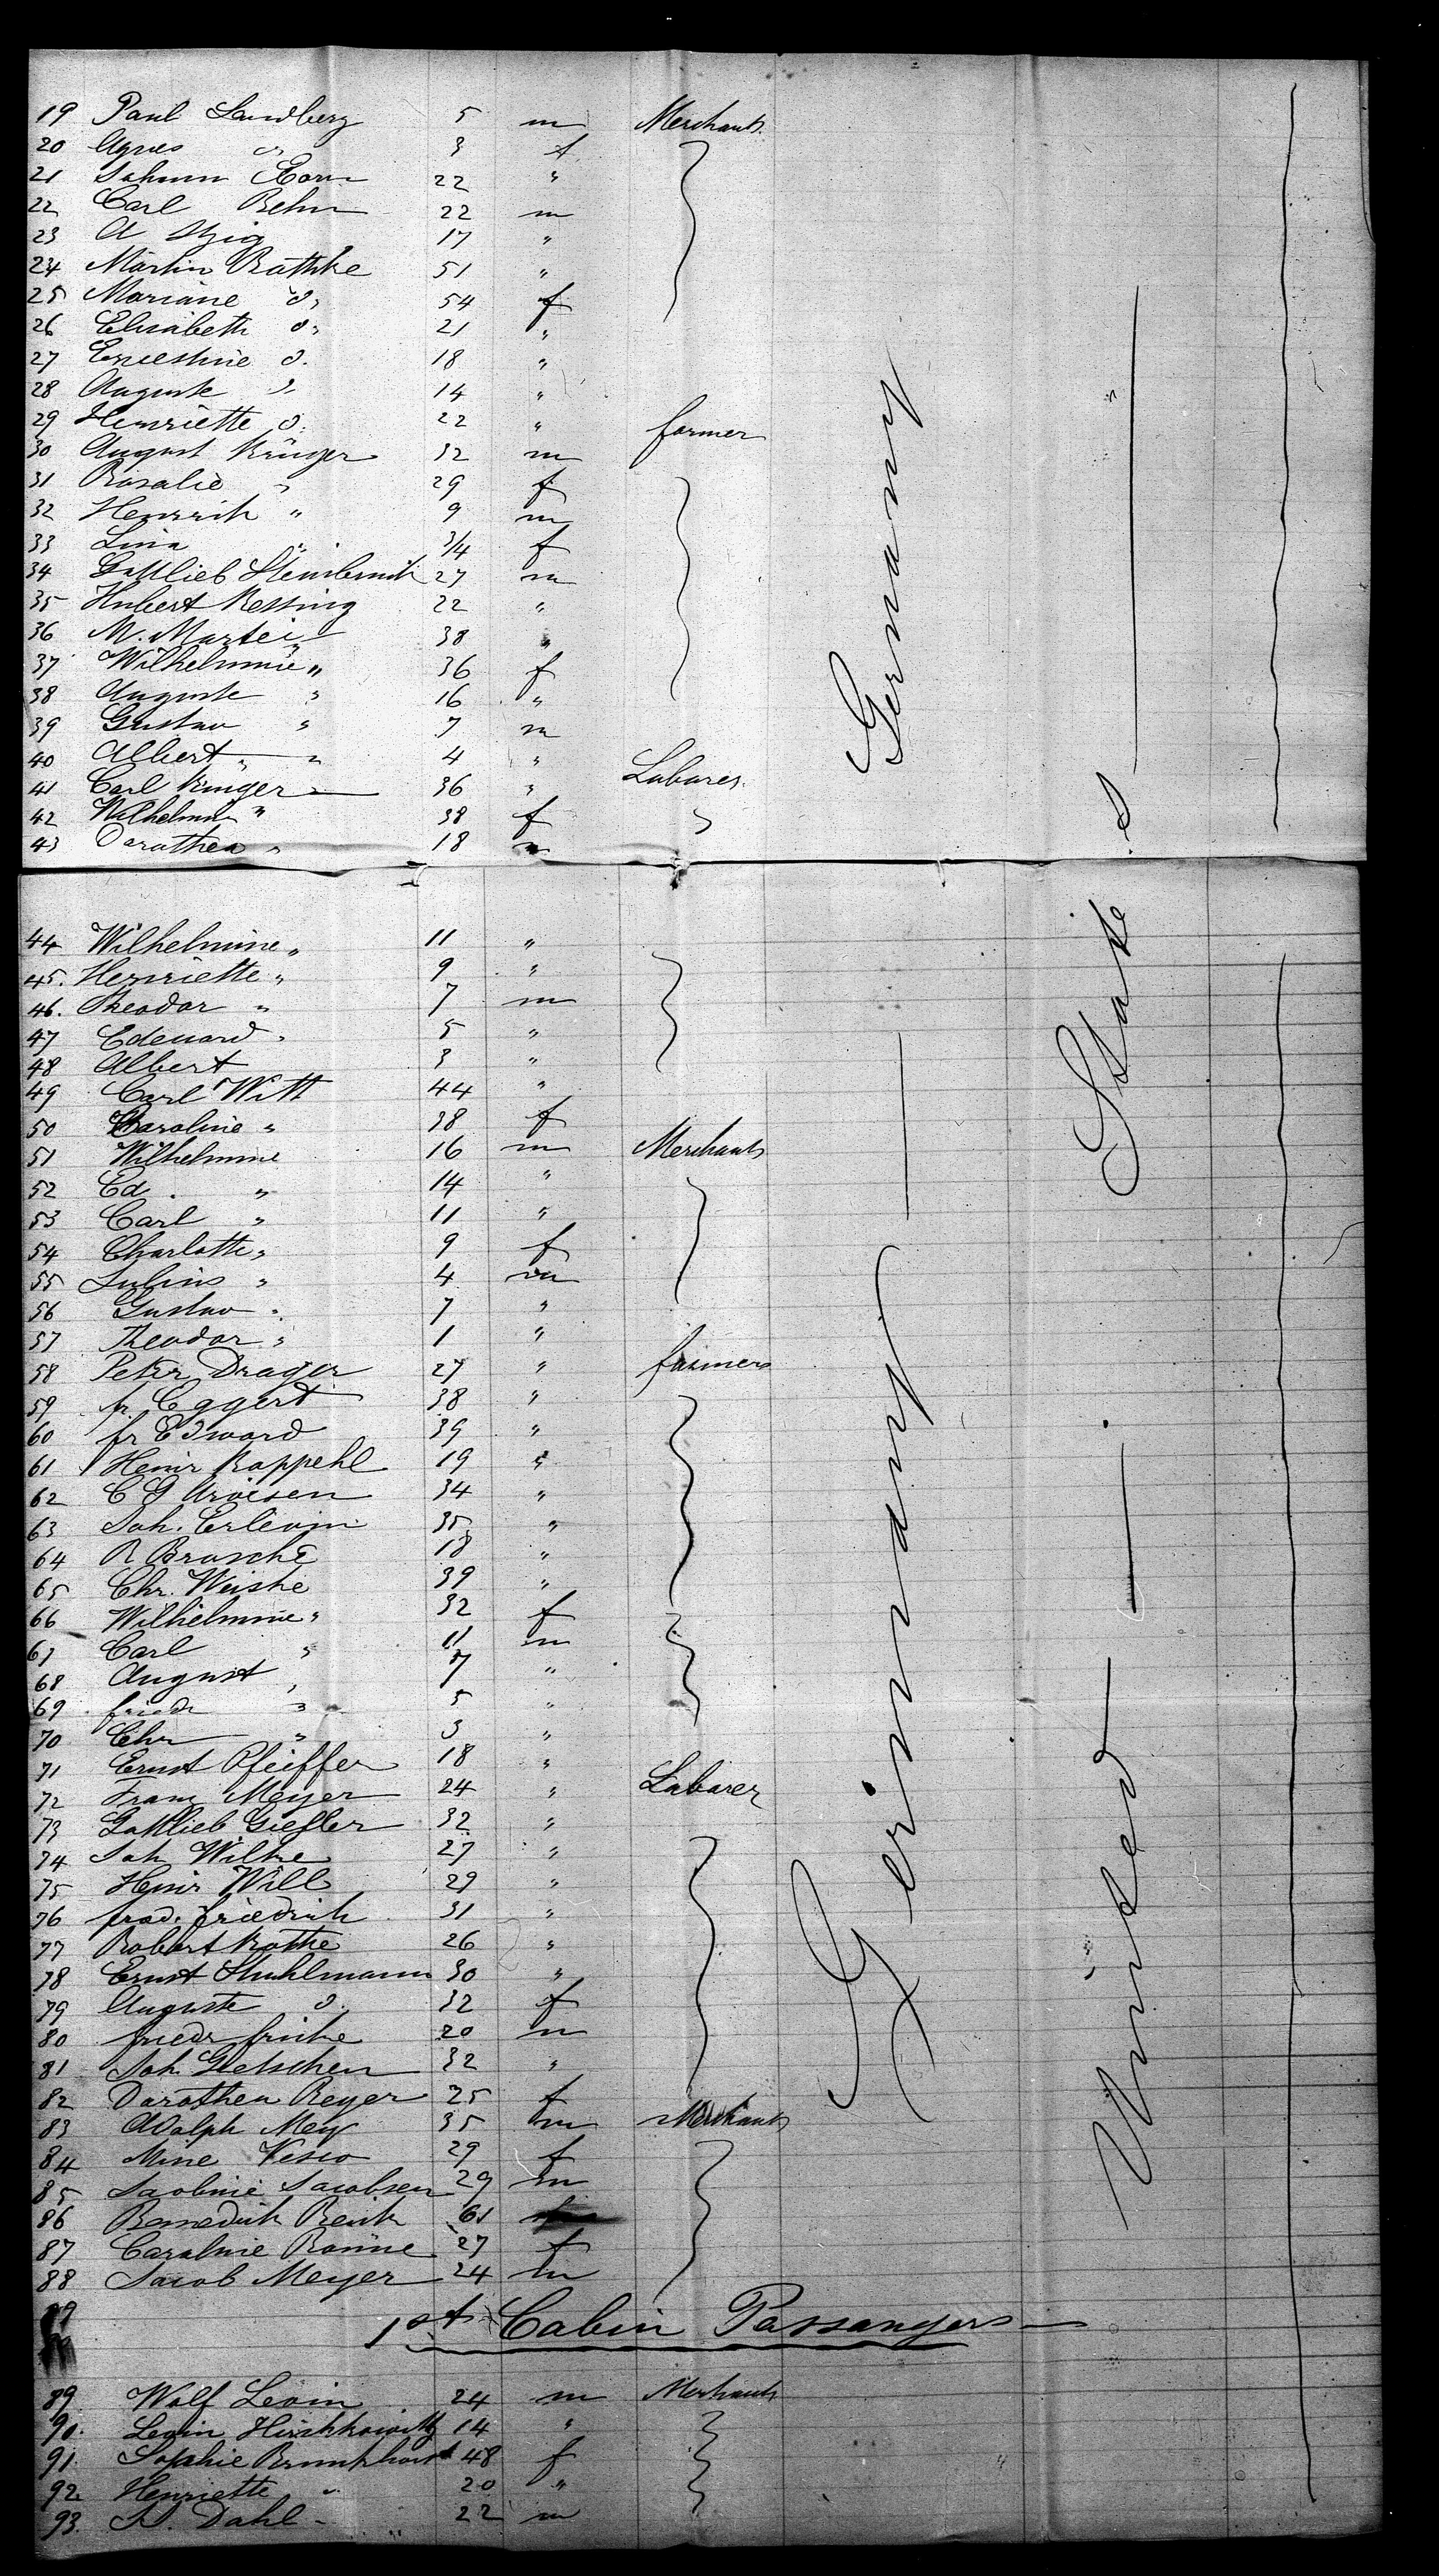 19 Paul Sandberg 5 m Merchants
20 Agnes " 3 f
21 Johann 22 "
22 Carl Behm 22 m
23 A 17 "
24 Martin Rathke 51 "
25 Mariane d. 54 f
26 Elisabeth d. 21 "
27 Ernestine d. 18 "
28 Auguste d. 14 "
29 Henriette d. 22 " farmer
30 August Krüger 32 m
31 Rosalie " 29 f
32 Henrich " 9 m
33 Lina " 3/4 f
34 Gottlieb 27 m
35 Hubert Kessing 22 "
36 M. Martei 38 "
37 Wilhelmine " 36 f
38 Auguste " 16 "
39 Gustav " 7 m
40 Albert " 4 "
41 Carl Krüger 36 " Labarer
42 Wilhelmin " 38 f
43 Darothea " 18 "
44 Wilhelmine " 11 "
45. Henriette " 9 "
46. Theodor " 7 m
47 Edouard " 5 "
48 Albert 3 "
49 Carl Witt 44 "
50 Caroline " 38 f
51 Wilhelmine 16 m Merchants
52 Ed. " 14 "
53 Carl " 11 "
54 Charlotte " 9 f
55 Julius " 4 m
56 Gustav " 7 "
57 Theodor " 1 "
58 Peter Drager 27 " farmers
59 fr. Eggert 38 "
60 fr Edward 39 "
61 Heinr Kappehl 19 "
62 C G 34 "
63 Joh. 35 "
64 R Brasche 18 "
65 Chr. Weiske 39 "
66 Wilhelmine " 32 f
67 Carl " 11 m
68 August " 7 "
69 friedr " 5 "
70 Chr " 3 "
71 Ernst Pfeiffer 18 "
72 Franz Meyer 24 " Labarer
73 Gottlieb Giessler 32 "
74 Joh Wilke 27 "
75 Heinr Will 29 "
76 fred. friedrich 31 "
77 Robert Kothe 26 "
78 Ernst Stuhlmann 30 "
79 Auguste d. 32 f
80 friedr fricke 20 m
81 Joh. Gletschen 32 "
82 Darothea Reyer 25 f
83 Adolph Mey 35 m Merchants
84 Mine 29 f
85 Jacobsen 29 m
86 Benedick 61
87 Caroline Ronne 27 f
88 Jacob Meyer 24 m
89
1st Cabin Passangers
89 Wolf Levin 24 m Merchants
90. Levin Hirschkowitz 14 "
91. Sophie Brunkhorst 48 f
92. Henriette " 20 "
93. N. Dahl 22 m
Germany
Germany
United States